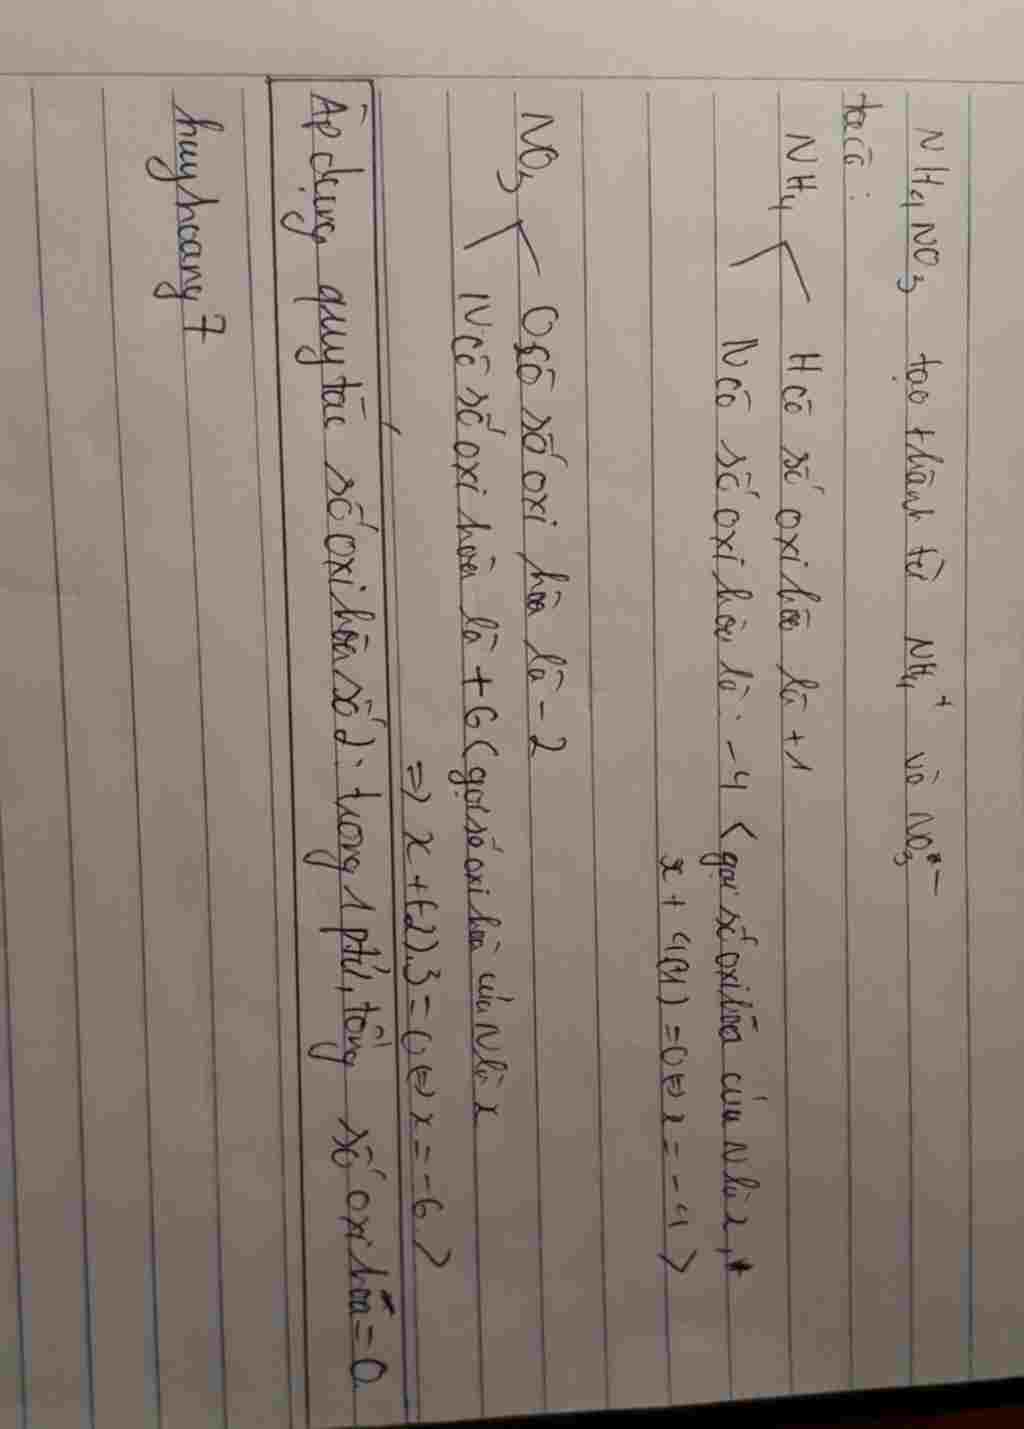 NH4NO3 tạo thành từ NH4+ và NO3-
ta có:
NH4 < H có số oxi hóa là +1
N có số oxi hóa là: -4 < gọi số oxi hóa của N là x,
x + 4(1) = 0 ⇔ x = -4 >
NO3 < O có số oxi hóa là -2
N có số oxi hóa là +6 (gọi số oxi hóa của N là x
⇒ x + (-2).3 = 0 ⇔ x = -6.>
Áp dụng quy tắc số oxi hóa số 2: trong 1 ptử, tổng số oxi hóa = 0.
huyhoang7